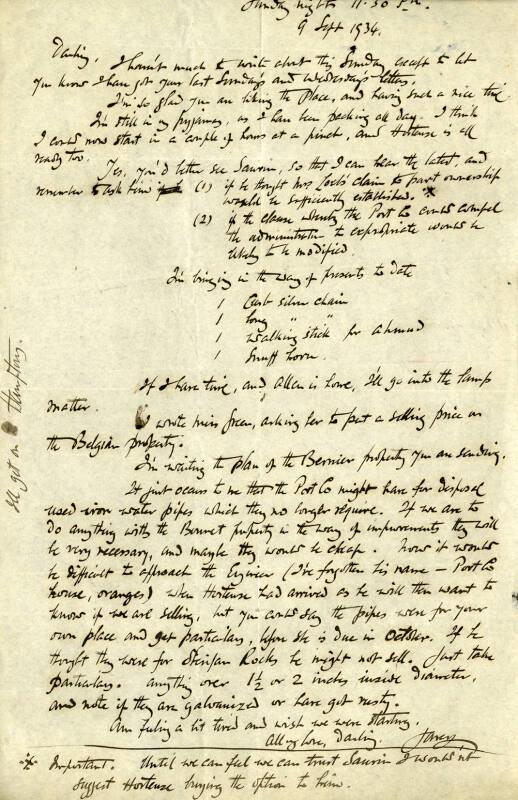 Sunday night 11.30 p.m.
9 Sept 1934.
Darling,
I haven't much to write about this Sunday except to let
you know I have got your last Sunday's and Wednesday's letters.
I'm so glad you are liking the place, and having such a nice time
I'm still in my pyjamas, as I have been packing all day. I think
I could now start in a couple of hours at a pinch, and Hortense is all
ready too.
Yes, you'd better see Saurin, so that I can hear the latest, and
remember to ask him (1) if he thought Mrs Loeb's claim to part ownership
would be sufficiently established. *
(2) if the clause whereby the Port Co could compel
the administrator to expropriate would be
likely to be modified.
I'm bringing in the way of presents to date
1 Curb silver chain
1 long " "
1 Walking stick for Ahmed
1 Snuff horn.
If I have time, and Allen is home, I'll go into the lamp
matter.
I wrote Miss Green, asking her to put a selling price on
the Belgian property.
I'm waiting the plan of the Bernier property you are sending.
It just occurs to me that the Port Co might have for disposal
used iron water pipes which they no longer require. If we are to
do anything with the property in the way of improvements they will
be very necessary, and maybe they would be cheap. Now it would
be difficult to approach the Engineer (I've forgotten his name – Port Co
house, oranges) when Hortense had arrived as he will then want to
know if we are selling, but you could say the pipes were for your
own place and get particulars, before she is due in October. If he
thought they were for Shenfan Rocks he might not sell. Just take
particulars. Anything over 1½ or 2 inches inside diameter,
and note if they are galvanized or have got rusty.
Am feeling a bit tired and wish we were starting.
All my love, darling.
* Important. Until we can feel we can trust Saurin I would not
suggest Hortense buying the option to him.
I'll get on